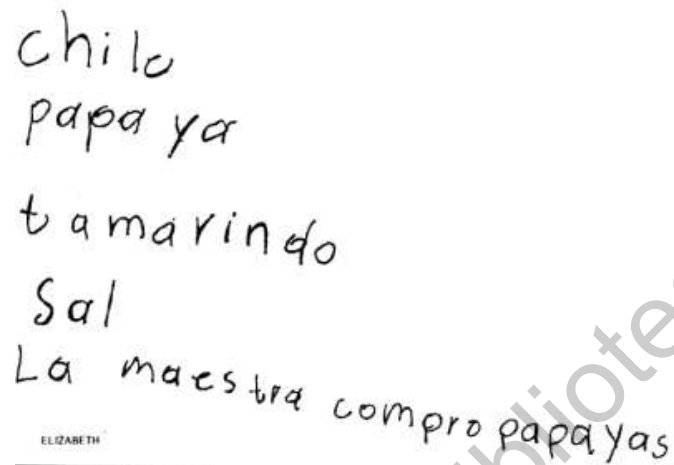 chile
papaya
tamarindo
Sal
La maestra compro papayas
ELIZABETH